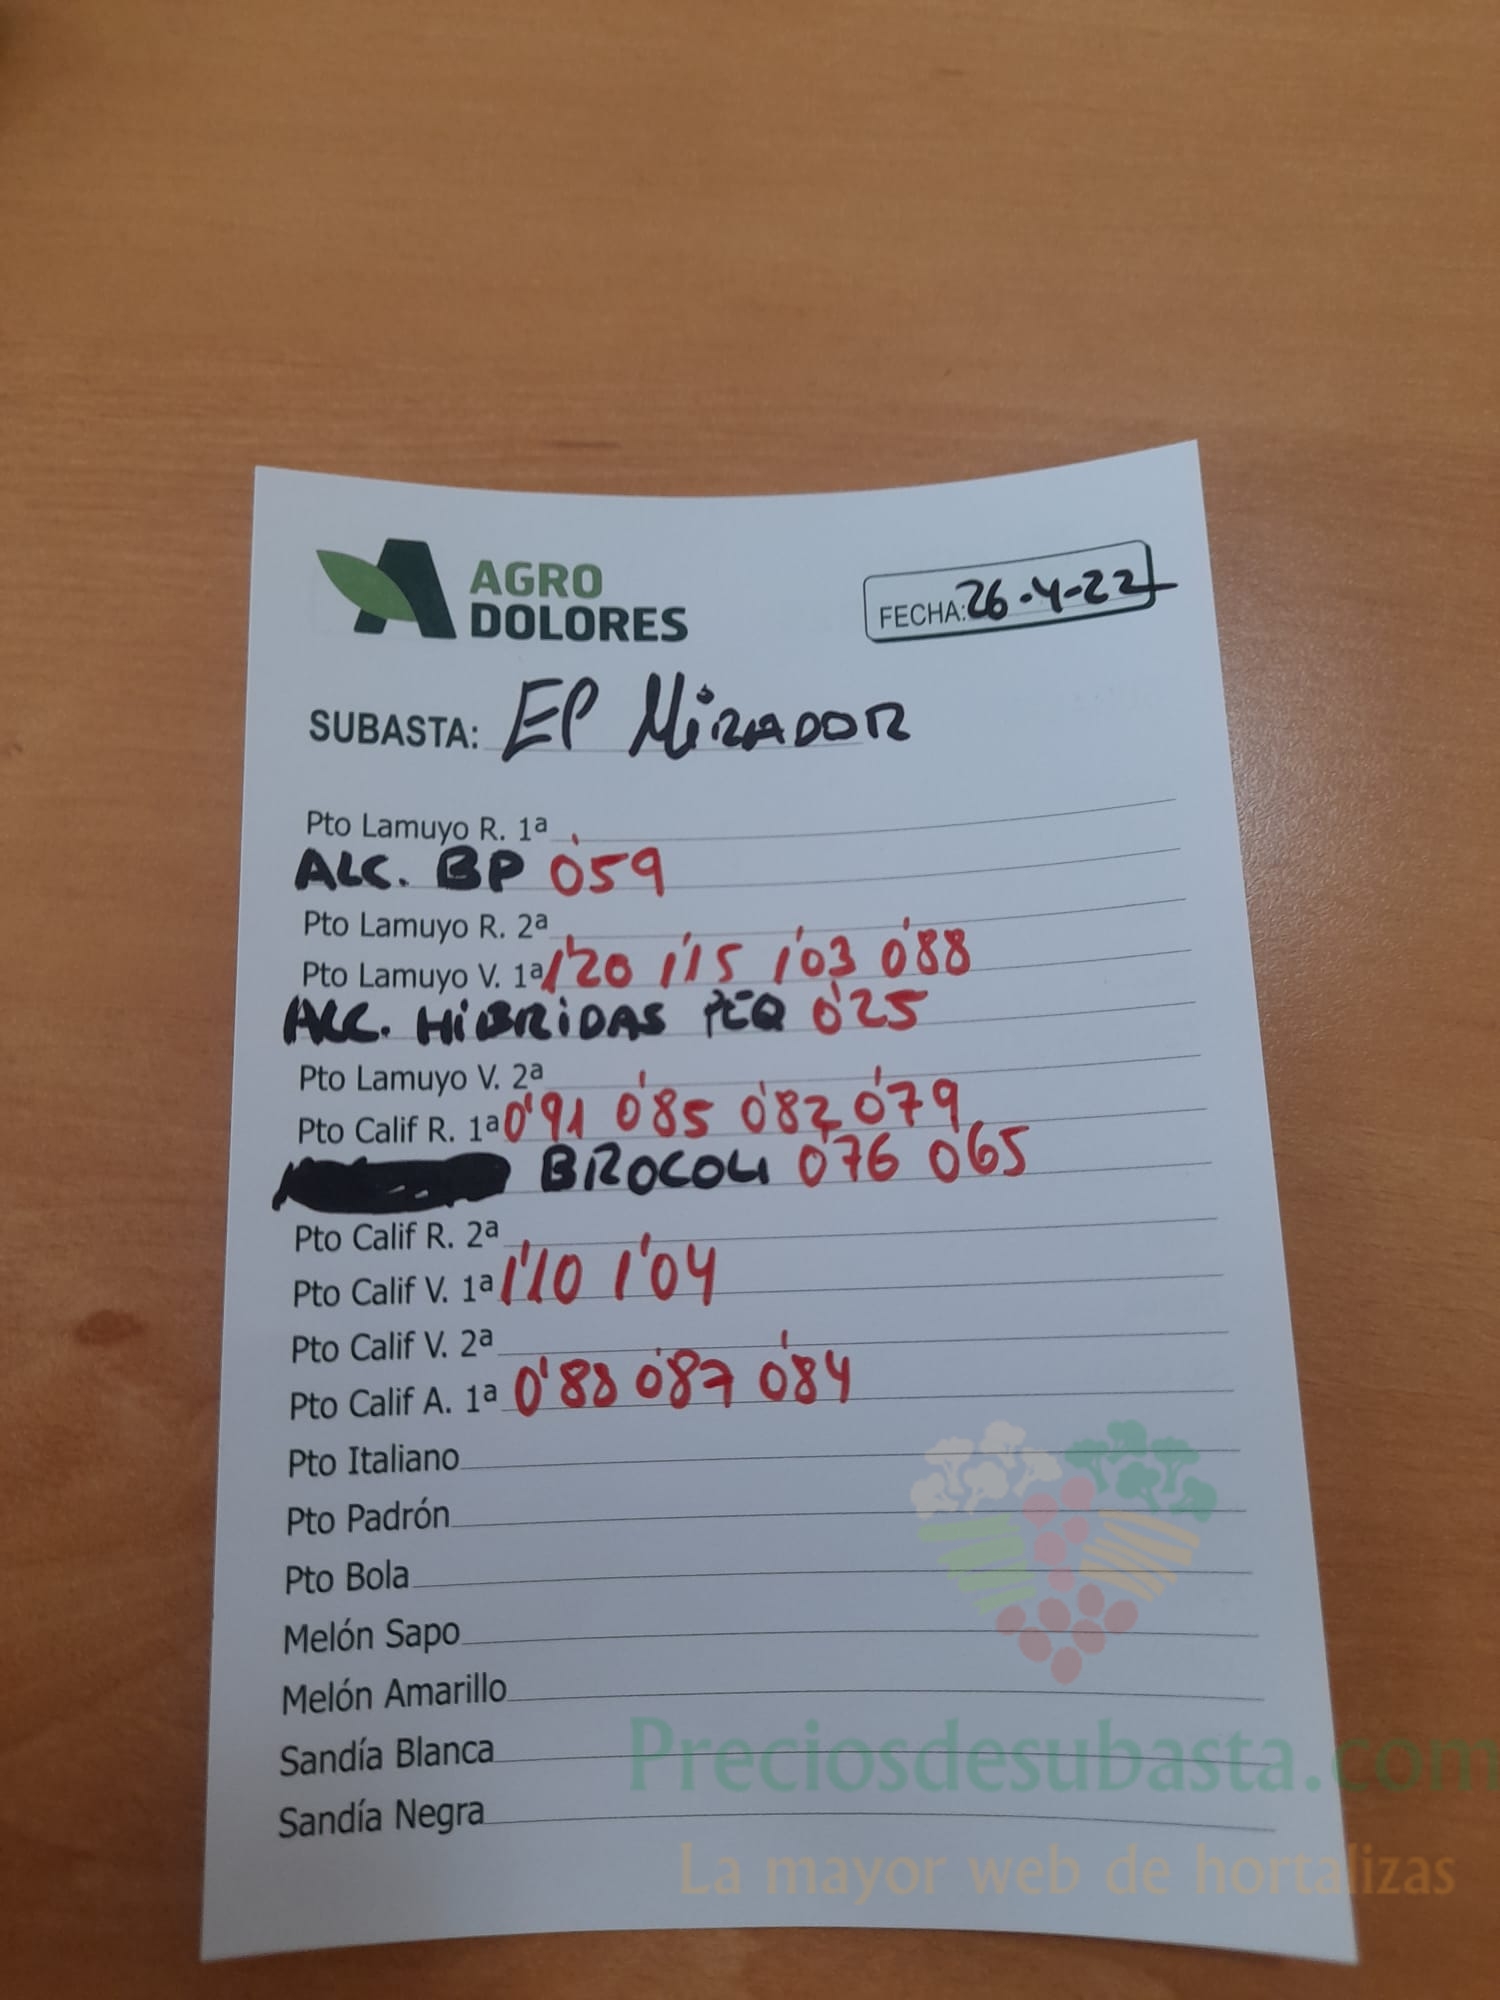 AGRO
DOLORES
FECHA: 26-4-22
SUBASTA: EP MiRADOR
Pto Lamuyo R. 1ª
ALC. BP 0'59
Pto Lamuyo R. 2ª
Pto Lamuyo V. 1ª 1'20 1'15 1'03 0'88
ALC. HiBRiDAS PEQ 0'25
Pto Lamuyo V. 2ª
Pto Calif R. 1ª 0'91 0'85 0'82 0'79
BROCOLi 0'76 0'65
Pto Calif R. 2ª
Pto Calif V. 1ª 1'10 1'04
Pto Calif V. 2ª
Pto Calif A. 1ª 0'88 0'87 0'84
Pto Italiano
Pto Padrón
Pto Bola
Melón Sapo
Melón Amarillo
Sandía Blanca
Sandía Negra
Preciosdesubasta.com
La mayor web de hortalizas